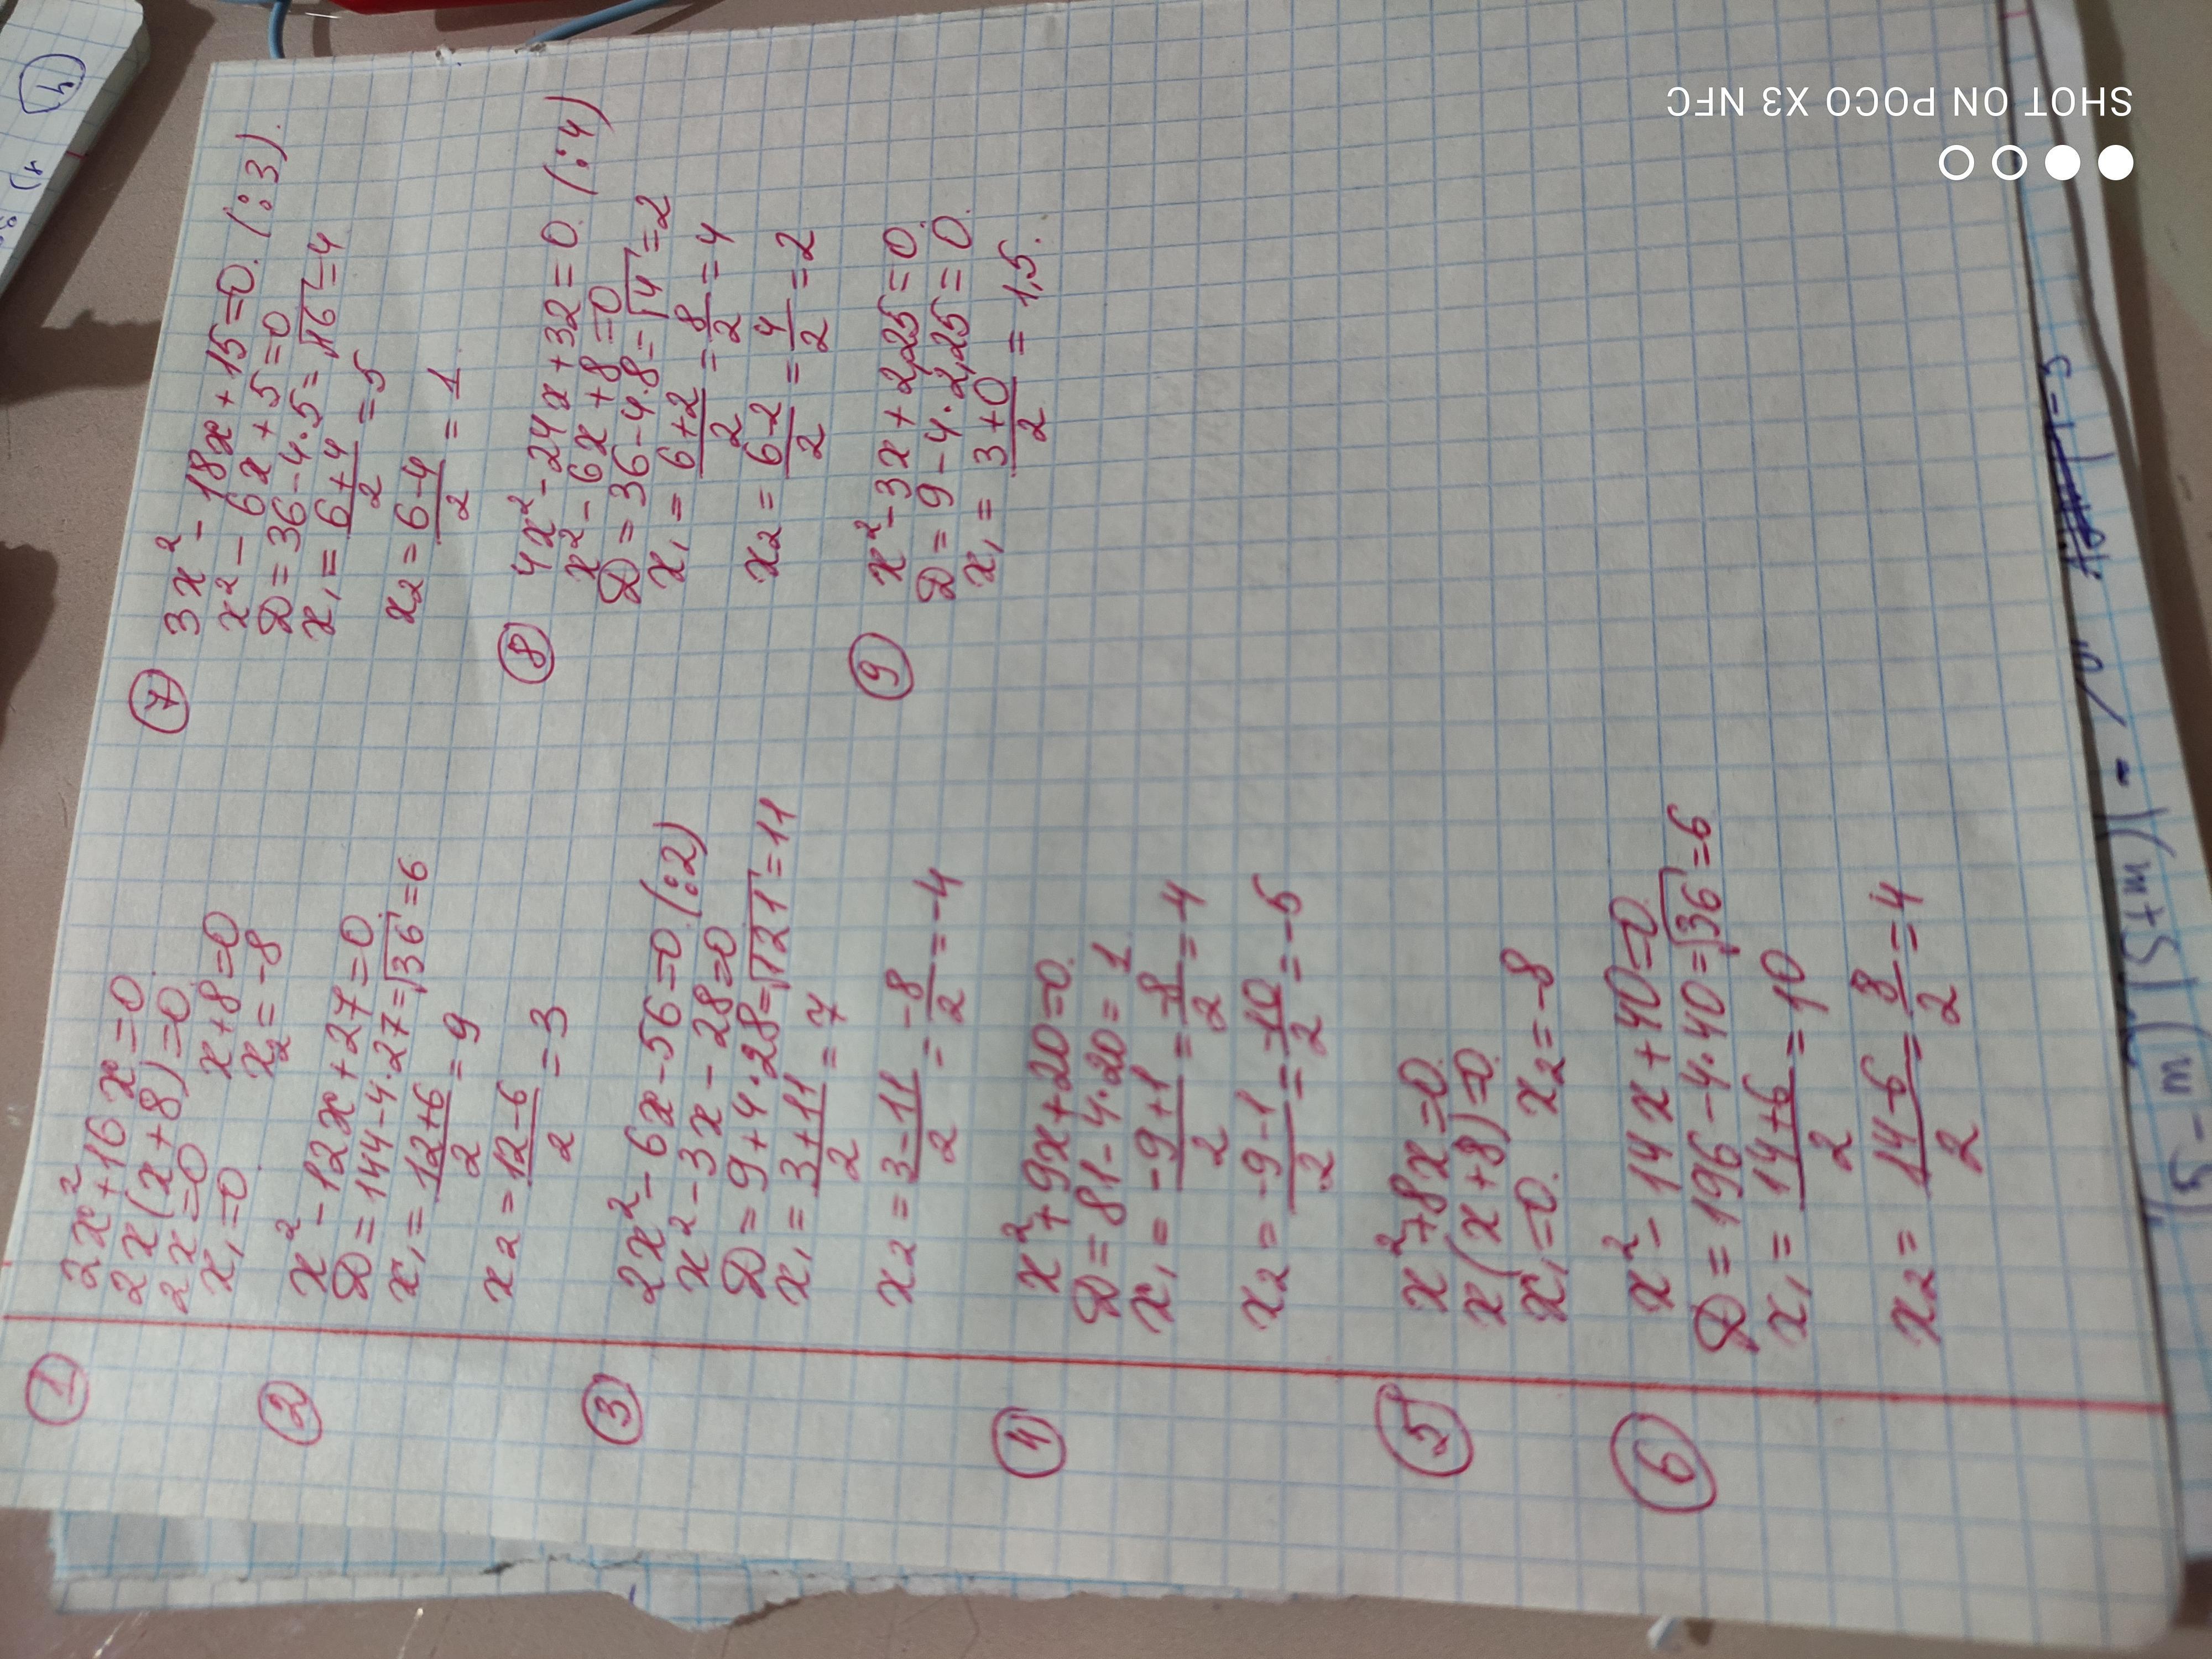 ①
2x²+16x=0
2x(x+8)=0
2x=0 x+8=0
x₁=0 x₂=-8
②
x²-12x+27=0
D=144-4·27=√36=6
x₁=(12+6)/2=9
x₂=(12-6)/2=3
③
2x²-6x-56=0 (:2)
x²-3x-28=0
D=9+4·28=√121=11
x₁=(3+11)/2=7
x₂=(3-11)/2=-8/2=-4
④
x²+9x+20=0.
D=81-4·20=1
x₁=(-9+1)/2=-8/2=-4
x₂=(-9-1)/2=-10/2=-5
⑤
x²+8x=0.
x(x+8)=0.
x₁=0. x₂=-8
⑥
x²-14x+40=0.
D=196-4·40=√36=6
x₁=(14+6)/2=10
x₂=(14-6)/2=8/2=4
⑦
3x²-18x+15=0. (:3).
x²-6x+5=0
D=36-4·5=√16=4
x₁=(6+4)/2=5
x₂=(6-4)/2=1.
⑧
4x²-24x+32=0. (:4)
x²-6x+8=0
D=36-4·8=√4=2
x₁=(6+2)/2=8/2=4
x₂=(6-2)/2=4/2=2
⑨
x²-3x+2,25=0.
D=9-4·2,25=0.
x₁=(3+0)/2=1,5.
SHOT ON POCO X3 NFC